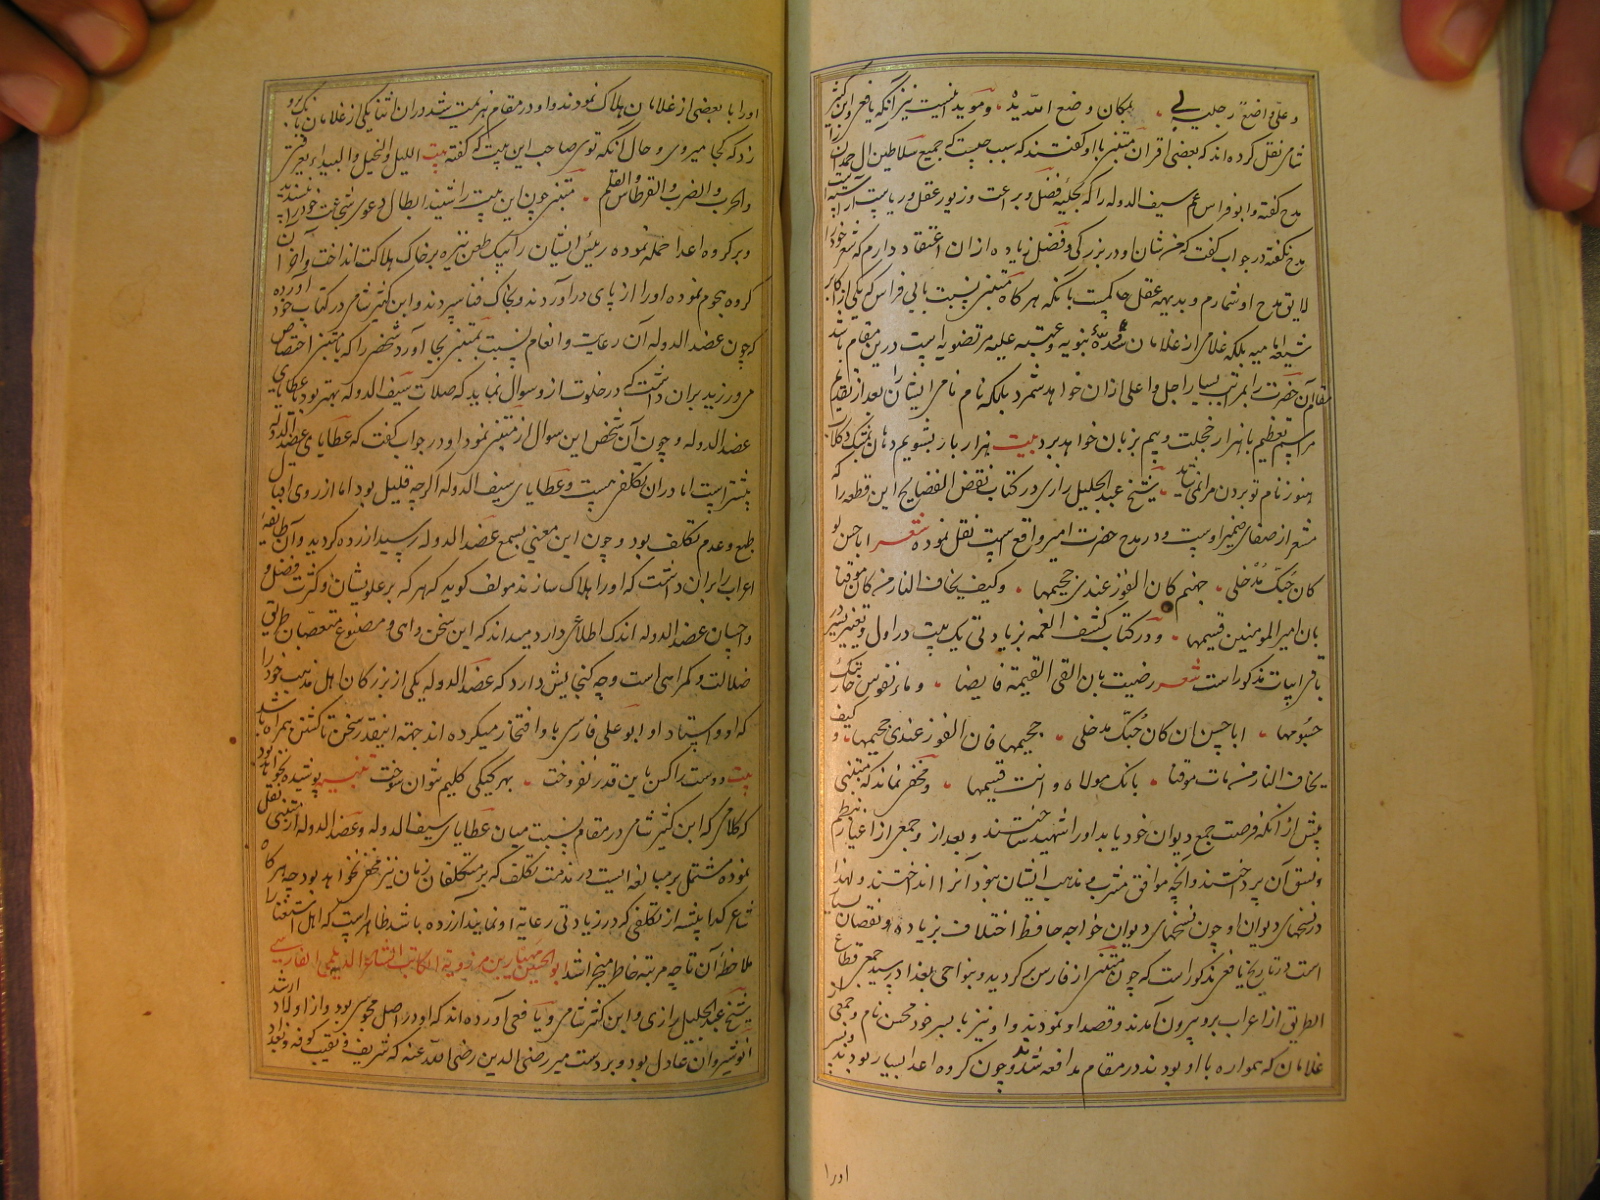 و علی واضع رجلیه بمکان وضع الله یده و مؤید اینست نیز آنکه یافعی و ابن کثیر
شامی نقل کرده اند که بعضی اقران متنبی با او گفتند که سبب چیست که جمیع سلاطین آل حمدان را
مدح گفته و ابو فراس عم سیف الدوله را که بحلیه فضل و براعت و زیور عقل و ریاست آراسته است
مدح نگفته در جواب گفت که من شان او در بزرکی و فضل زیاده از ان اعتقاد دارم که شعر خود را
لایق مدح او شمارم و بدیهه عقل حاکمست بآنکه هرکاه متنبی نسبت بابی فراس که یکی از اکابر
شیعه امامیه بلکه غلامی از غلامان سده نبویه و عتبه علیه مرتضویه است درین مقام باشد
مقام آن حضرت را بمراتب بسیار اجل و اعلی ازان خواهد شمرد بلکه نام نامی ایشان را بعد از تقدیم
مراسم تعظیم با هزار خجلت و بیم بر زبان خواهد برد بیت هزار بار بشویم دهان بمشک و کلاب
هنوز نام تو بردن مرا نمی شاید شیخ عبد الجلیل رازی در کتاب نقض الفضایح این قطعه را که
مشعر از صفای ضمیر اوست و در مدح حضرت امیر واقع است نقل نموده شعر ابا حسن لو
کان حبک مدخلی جهنم کان الفوز عندی جحیمها و کیف یخاف النار من کان موقنا
بان امیر المومنین قسیمها و در کتاب کشف الغمه بزیادتی یک بیت در اول و تغییر یسیر در
باقی ابیات مذکور است شعر رضیت بان القی القیمة فایضا و ماء نفوس حاربتک
جسومها ابا حسن ان کان حبک مدخلی جحیمها فان الفوز عندی جحیمها و کیف
یخاف النار من بات موقنا بانک مولاه و انت قسیمها و مخفی نماند که متنبی
پیش از آنکه فرصت جمع دیوان خود یابد او را شهید ساختند و بعد از و جمعی از اغیار بنظم
و نسق آن پرداختند و آنچه موافق مشرب و مذهب ایشان نبود آنرا انداختند و لهذا
در نسخهای دیوان او چون نسخهای دیوان خواجه حافظ اختلاف بزیاده و نقصان بسیار
است در تاریخ یافعی مذکور است که چون متنبی از فارس برکردید و بنواحی بغداد رسید جمعی قطاع
الطریق از اعراب برو بیرون آمدند و قصد او نمودند و او نیز با پسر خود محسن نام و جمعی از
غلامان که همواره با او بودند در مقام مدافعه شدند و چون کروه اعدا بسیار بودند پسر
اورا
اورا با بعضی از غلامان هلاک نمودند و او در مقام هزیمت شد در ان اثنا یکی از غلامان بانک برو
زد که کجا میروی و حال آنکه توی صاحب این بیت که گفته بیت اللیل والخیل والبیداء یعرفنی
والحرب والضرب والقرطاس والقلم متنبی چون این بیت را شنید ابطال دعوی شجاعت خود را نپسندید
و بر کروه اعدا حمله نموده رئیس ایشان را بیک طعن نیزه بر خاک هلاکت انداخت و آخر آن
کروه هجوم نموده اورا از پای در آوردند و بخاک فنا سپردند و ابن کثیر شامی در کتاب خود آورده
که چون عضد الدوله آن رعایت و انعام نسبت بمتنبی بجا آورد شخصی را که با متنبی اختصاص
می ورزید بران داشت که در خلوت از و سوال نماید که صلات سیف الدوله بهتر بود یا عطایای
عضد الدوله و چون آن شخص این سوال از متنبی نمود او در جواب گفت که عطایای عضد الدوله
بیشتر است اما دران تکلفی هست و عطایای سیف الدوله اگرچه قلیل بود اما از روی اقبال
طبع و عدم تکلف بود و چون این معنی بسمع عضد الدوله رسید ازرده کردید و آن طایفه
اعراب را بران داشت که اورا هلاک سازند مؤلف کوید که هر که بر علو شان و کثرت فضل و
احسان عضد الدوله اندک اطلاعی دارد میداند که این سخن واهی و مصنوع متعصبان طریق
ضلالت و کمراهی است و چه کنجایش دارد که عضد الدوله یکی از بزرکان اهل مذهب خود را
که او و استاد او ابو علی فارسی باو افتخار میکرده اند جهة اینقدر سخن تا کشتن همراه باشد
بیت دوست را کس باین قدر نفروخت بهر کیکی کلیم نتوان سوخت تنبیه پوشیده نخواهد بود
که کلامی که ابن کثیر شامی در مقام نسبت میان عطایای سیف الدوله و عضد الدوله از متنبی نقل
نموده مشتمل بر مبالغه ایست در مذمت تکلف که بر متکلفان زمان نیز مخفی نخواهد بود چه هرکاه
شاعر کدا پیشه از تکلفی که در زیادتی رعایة او نمایند آزرده باشد ظاهر است که اهل استغنا را
ملاحظه آن تا چه مرتبه خاطر میخراشد ابو الحسین مهیار بن مرزویه الکاتب الشاعر الدیلمی الفارسی
شیخ عبد الجلیل رازی و ابن کثیر شامی و یافعی آورده اند که او در اصل مجوسی بود و از اولاد ارشد
انوشیروان عادل بود و بر دست میر رضی الدین رضی الله عنه که شریف و نقیب کوفه و بغداد